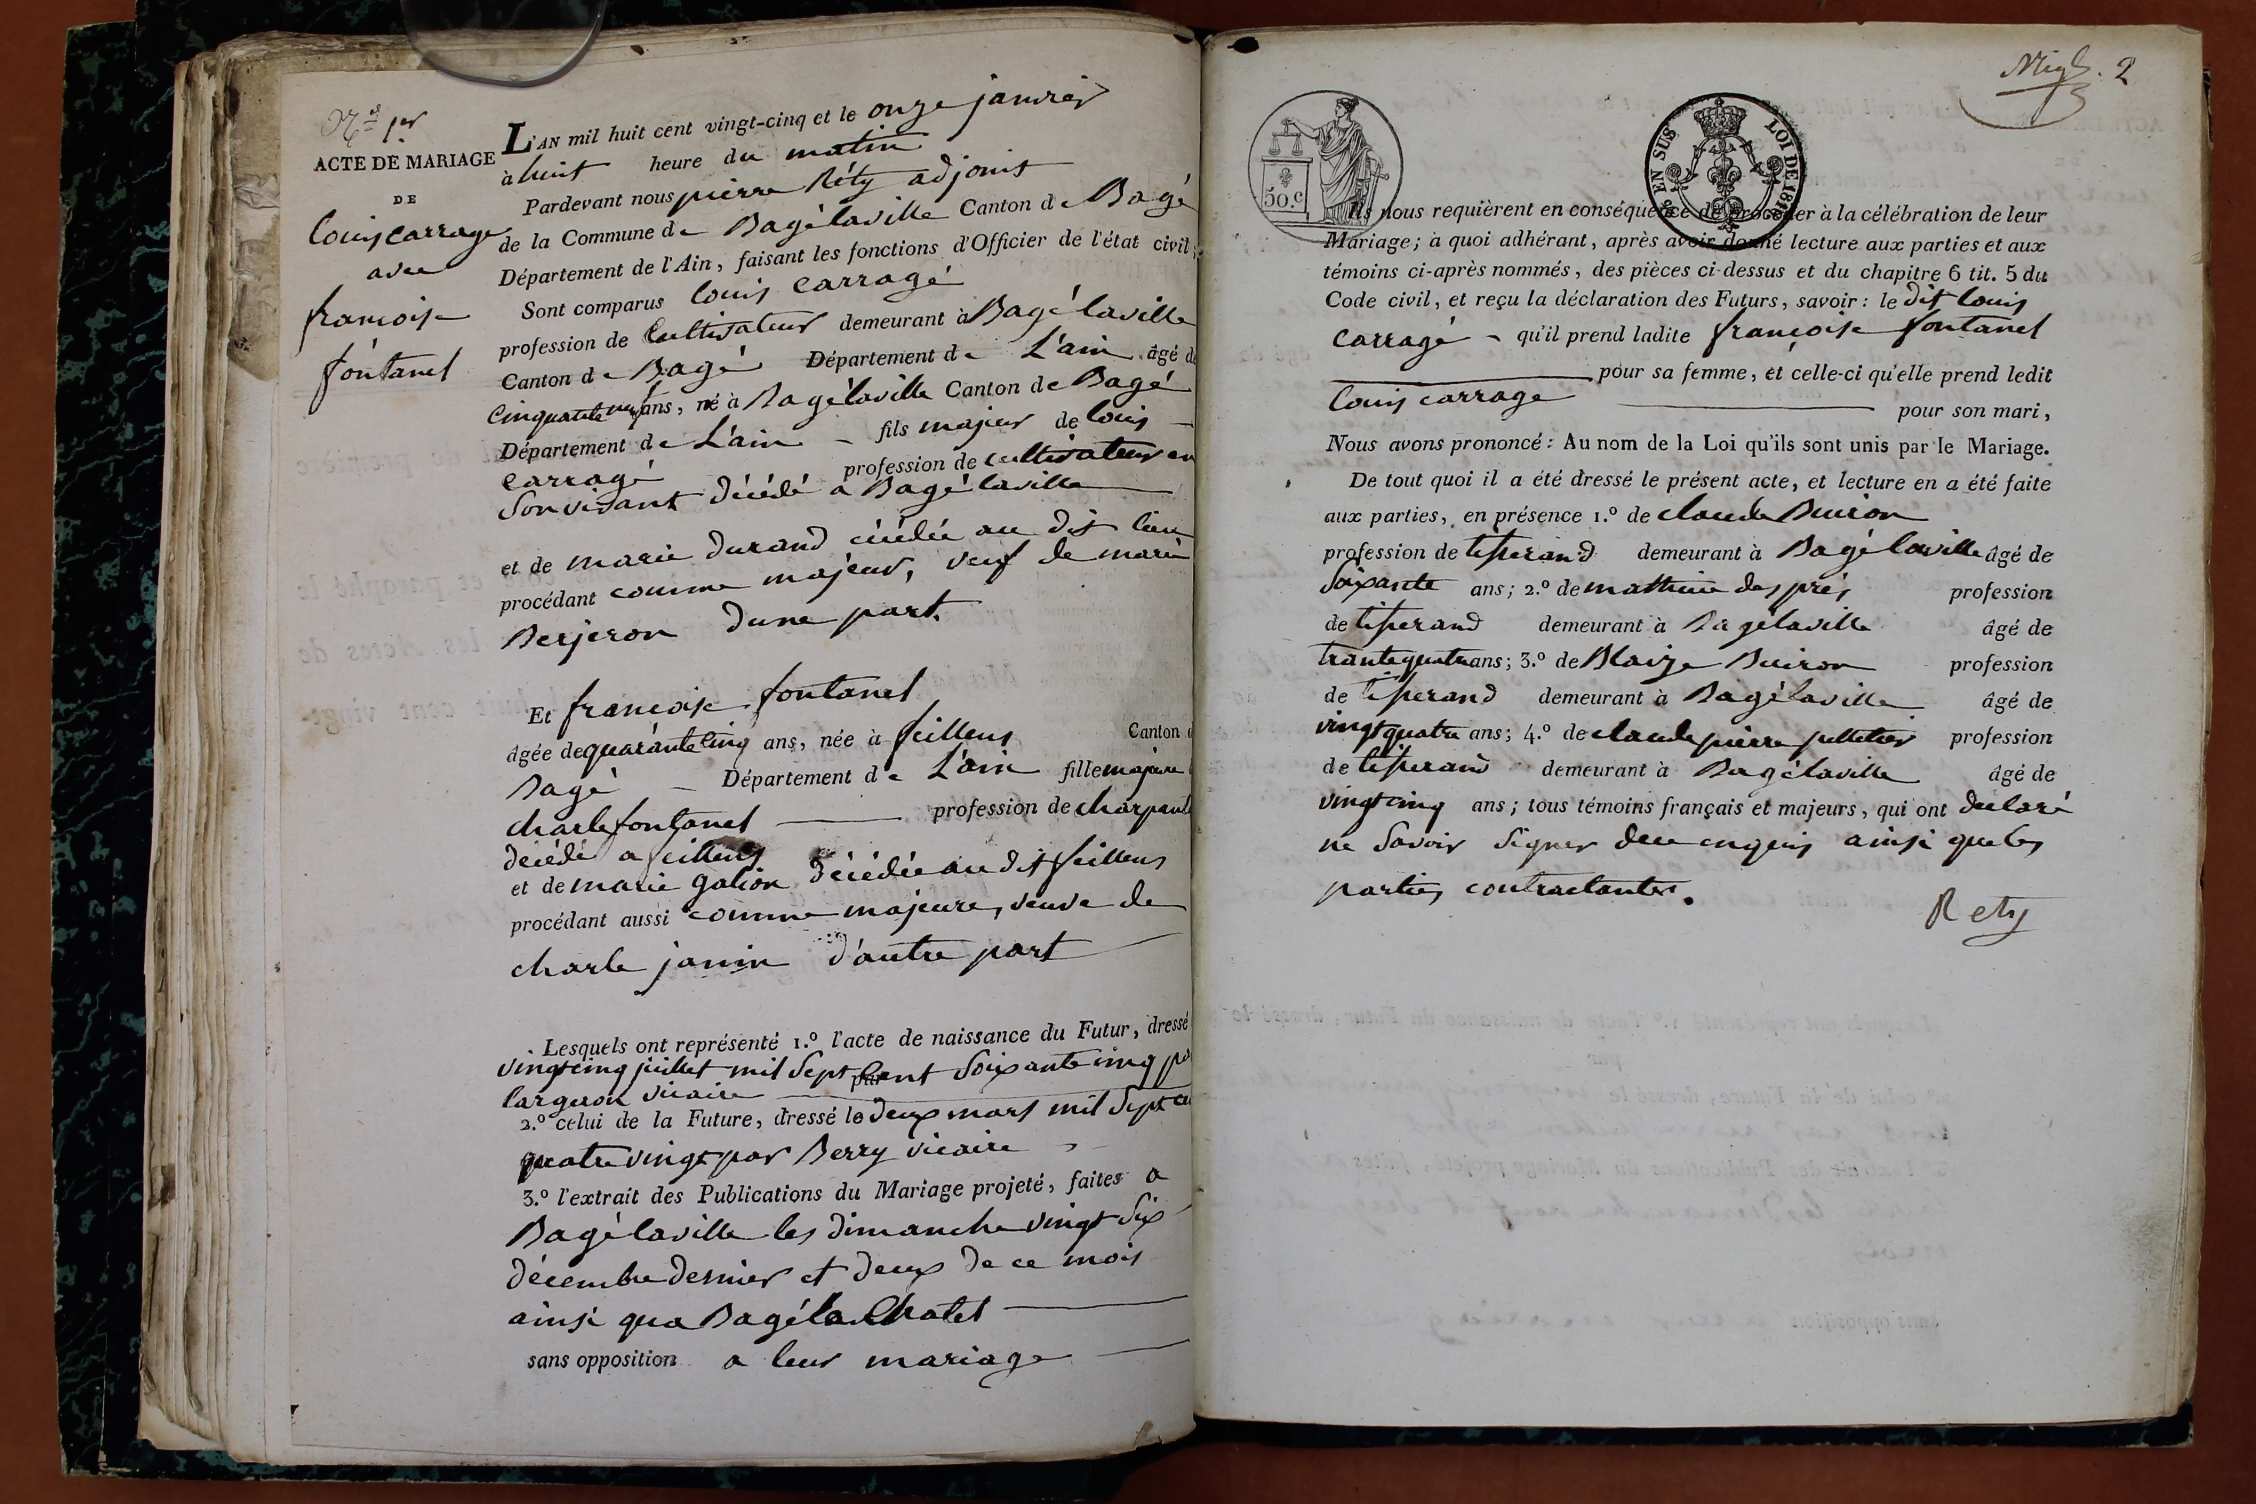 N.º 1er
ACTE DE MARIAGE
DE
Louis carrage
avec
francoise
fontanel
L'AN mil huit cent vingt-cinq et le onze janvier
à huit heure du matin
Pardevant nous pierre Réty adjoint
de la Commune de Bagélaville Canton de Bagé
Département de l'Ain, faisant les fonctions d'Officier de l'état civil;
Sont comparus louis carragé
profession de Cultivateur demeurant à Bagélaville
Canton de Bagé Département de L'ain âgé de
Cinquante neuf ans, né à Bagélaville Canton de Bagé
Département de L'ain - fils majeur de louis
carragé profession de cultivateur en
Son vivant décédé a Bagélaville
et de marie durand décédée au dit lieu
procédant comme majeur, veuf de marie
Berjeron dune part.
Et francoise fontanel
âgée de quarante cinq ans, née à feillens Canton d
Bagé - Département de L'ain fille majeure
charle fontanel profession de charpent
decédé a feillens
et de marie gation décédée au dit feillens
procédant aussi comme majeure, veuve de
charle janin d'autre part
Lesquels ont représenté 1.º l'acte de naissance du Futur, dressé
vingt cinq juillet mil Sept Cent Soixante cinq par
largeron vicaire
2.º celui de la Future, dressé le deux mars mil Sept ce
quatre vingt par Berry vicaire
3.º l'extrait des Publications du Mariage projeté, faites a
Bagélaville les dimanche vingt Six
décembre dernier et deux de ce mois
ainsi qua Bagé la Chatel
sans opposition a leur mariage
2
50.c
EN SUS
LOI DE 1816
Ils nous requièrent en conséquence de procéder à la célébration de leur
Mariage; à quoi adhérant, après avoir donné lecture aux parties et aux
témoins ci-après nommés, des pièces ci-dessus et du chapitre 6 tit. 5 du
Code civil, et reçu la déclaration des Futurs, savoir: le dit louis
carragé - qu'il prend ladite françoise fontanel
pour sa femme, et celle-ci qu'elle prend ledit
Louis carrage pour son mari,
Nous avons prononcé: Au nom de la Loi qu'ils sont unis par le Mariage.
De tout quoi il a été dressé le présent acte, et lecture en a été faite
aux parties, en présence 1.º de claude Buiron
profession de tisserand demeurant à Bagé laville âgé de
Soixante ans; 2.º de mathieu des prés profession
de tisserand demeurant à Bagélaville âgé de
trante quatre ans; 3.º de Blaize Buiron profession
de tisserand demeurant à Bagélaville âgé de
vingt quatre ans; 4.º de claude pierre pelletier profession
de tisserand demeurant à Bagélaville âgé de
vingt cinq ans; tous témoins français et majeurs, qui ont declaré
ne Savoir Signer de ce enquis ainsi que les
parties contractantes.
Rety